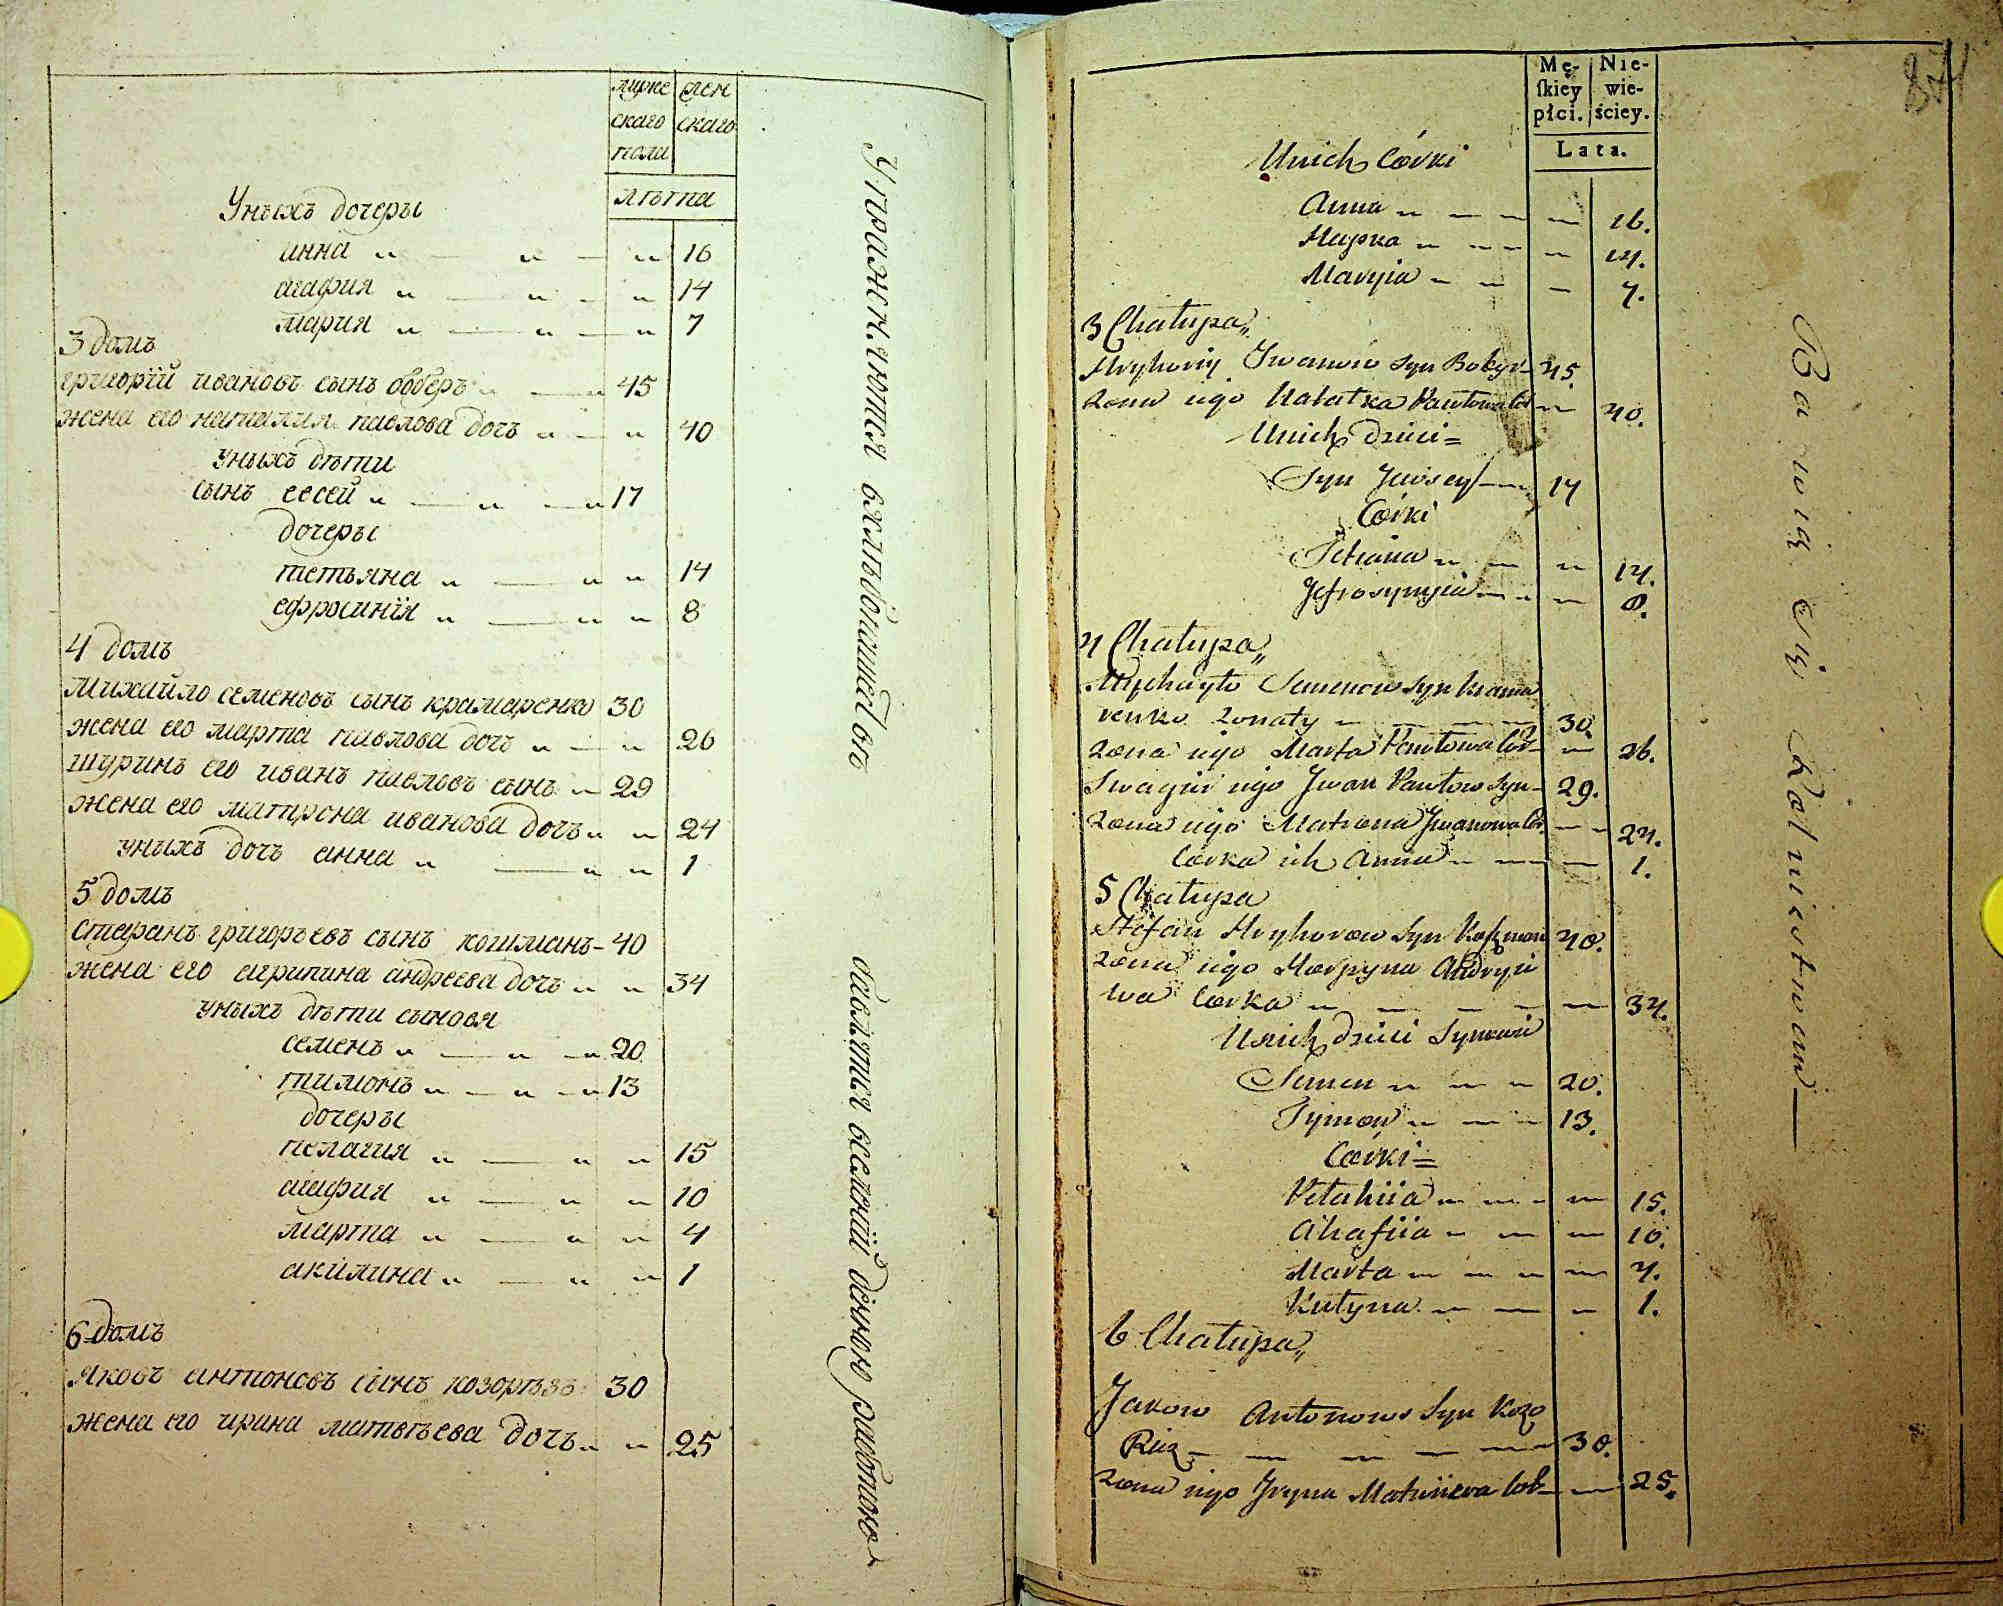 муже
скаго
пола
жен
скаго
лѣта
Уныхъ дочеры
анна 16
агафия 14
мария 7
3 домъ
григорїй ивановъ сынъ боберъ 45
жена его наталия павлова дочь 40
уныхъ дѣти
сынъ евсей 17
дочеры
тетьяна 14
ефросинїя 8
4 домъ
Михайло семеновъ сынъ крамаренко 30
жена его марта павлова дочь 26
шуринъ его иванъ павловъ сынъ 29
жена его матрона иванова дочь 24
уныхъ дочь анна 1
5 домъ
стефанъ григорьевъ сынъ кошманъ 40
жена его агрипина андреева дочь 34
уныхъ дѣти сыновя
семенъ 20
тимонъ 13
дочеры
пелагия 15
агафия 10
марта 4
акилина 1
6 домъ
Яковъ антоновъ сынъ козорѣзъ 30
жена его ирина матвѣева дочь 25
Упражняются вхлѣбопашество
бавлятся вселнїй денною работою
871
Mę-
skiey
płci.
Nie-
wie-
ściey.
Lata.
Unich Córki
Anna 16.
Hapka 14.
Maryia 7.
3 Chałupa
Hryhoriy Iwanow syn Bobyr 45.
Zona iego Natałka Pawłowa Cór 40.
Unich dzieci
Syn Jewsey 17
Córki
Tetiana 14.
Jefrosynyia 8.
4 Chałupa
Mychayło Semenow syn Krama
renko Zonaty 30.
Zona iego Marta Pawłowa Cór 26.
Swagier iego Jwan Pawłow Syn 29.
Zona iego Matrona Jwanowa Cór. 24.
Córka ich Anna 1.
5 Chałupa
Stefan Hryhorow syn Koszman 40.
Zona iego Horpyna Andryie
wa Corka 34.
Unich dzieci Synowie
Semen 20.
Tymon 13.
Corki
Pelahiia 15.
Ahafiia 10.
Marta 4.
Kułyna 1.
6 Chałupa
Jakow Antonow Syn Kozo
Riz 30.
Zona iego Jryna Matwiiewa Cór 25.
Bawią się Rolnictwam